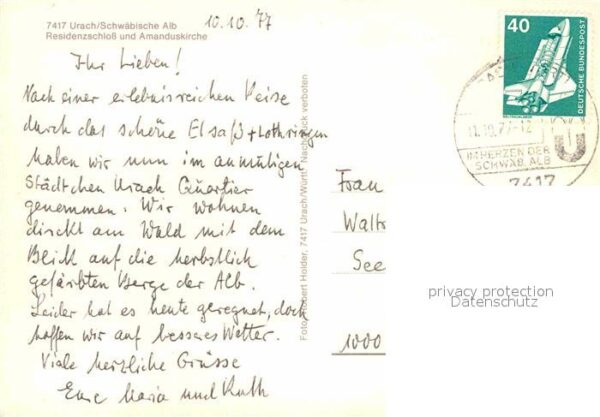 7417 Urach/Schwäbische Alb
Residenzschloß und Amanduskirche
10.10.77
Ihr Lieben!
Nach einer erlebnisreichen Reise
durch das schöne Elsaß + Lothringen
haben wir nun im anmutigen
Städtchen Urach Quartier
genommen. Wir wohnen
direkt am Wald mit dem
Blick auf die herbstlich
gefärbten Berge der Alb.
Leider hat es heute geregnet, doch
hoffen wir auf besseres Wetter.
Viele herzliche Grüsse
Eure Maria und Ruth
Foto: Robert Holder, 7417 Urach/Württ. Nachdruck verboten
40
DEUTSCHE BUNDESPOST
11.10.77-12
IM HERZEN DER
SCHWÄB. ALB
7417
Frau
Waltr
See
1000
privacy protection
Datenschutz